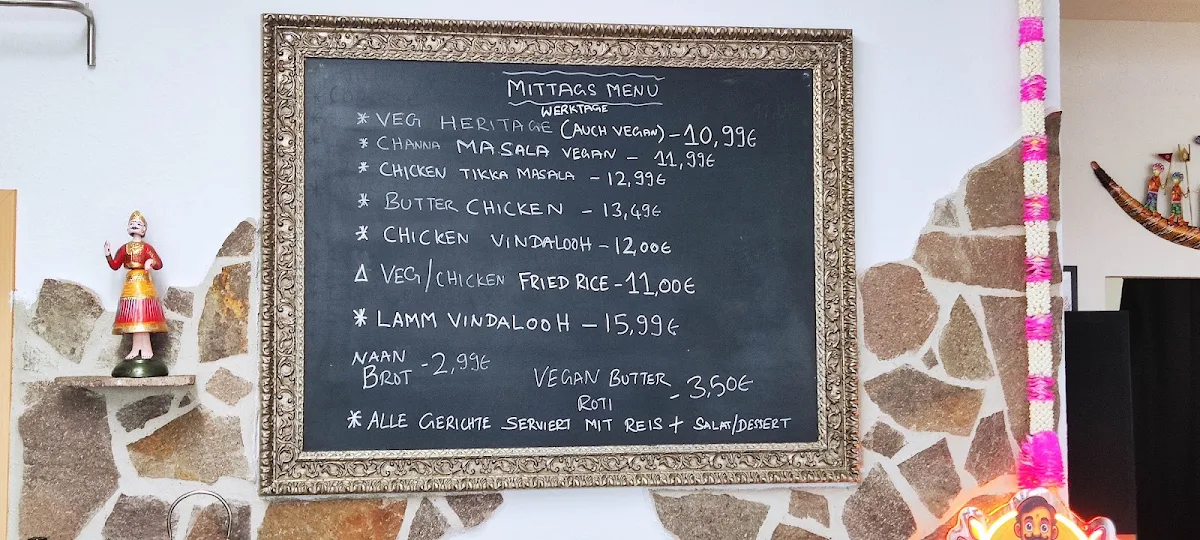 MITTAGS MENU
WERKTAGE
* VEG HERITAGE (AUCH VEGAN) - 10,99€
* CHANNA MASALA VEGAN - 11,99€
* CHICKEN TIKKA MASALA - 12,99€
* BUTTER CHICKEN - 13,49€
* CHICKEN VINDALOOH - 12,00€
Δ VEG/CHICKEN FRIED RICE - 11,00€
* LAMM VINDALOOH - 15,99€
NAAN BROT - 2,99€
VEGAN BUTTER ROTI - 3,50€
* ALLE GERICHTE SERVIERT MIT REIS + SALAT/DESSERT